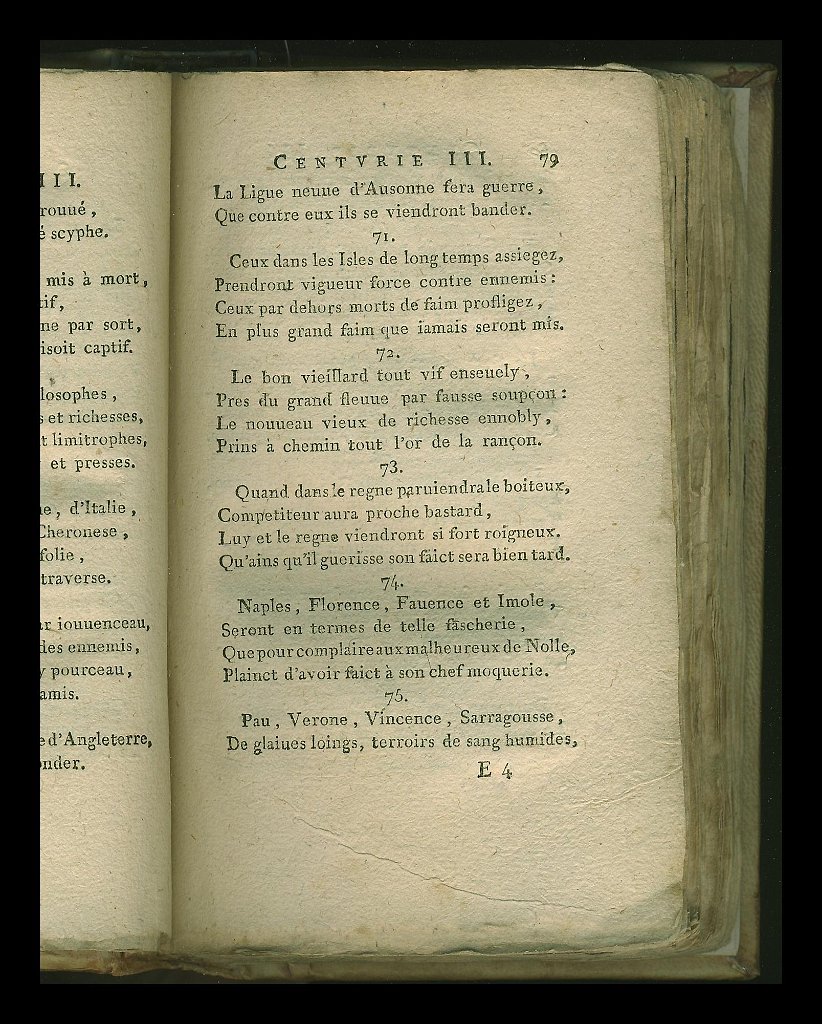 III.
rouué,
é scyphe.
mis à mort,
tif,
ne par sort,
isoit captif.
losophes,
s et richesses,
t limitrophes,
et presses.
ne, d'Italie,
Cheronese,
folie,
traverse.
ar iouuenceau,
des ennemis,
y pourceau,
amis.
e d'Angleterre,
onder.
CENTVRIE III. 79
La Ligue neuue d'Ausonne fera guerre,
Que contre eux ils se viendront bander.
71.
Ceux dans les Isles de long temps assiegez,
Prendront vigueur force contre ennemis:
Ceux par dehors morts de faim profligez,
En plus grand faim que iamais seront mis.
72.
Le bon vieillard tout vif enseuely,
Pres du grand fleuue par fausse soupçon:
Le nouueau vieux de richesse ennobly,
Prins à chemin tout l'or de la rançon.
73.
Quand dans le regne paruiendra le boiteux,
Competiteur aura proche bastard,
Luy et le regne viendront si fort roigneux.
Qu'ains qu'il guerisse son faict sera bien tard.
74.
Naples, Florence, Fauence et Imole,
Seront en termes de telle fascherie,
Que pour complaire aux malheureux de Nolle,
Plainct d'avoir faict à son chef moquerie.
75.
Pau, Verone, Vincence, Sarragousse,
De glaiues loings, terroirs de sang humides,
E 4